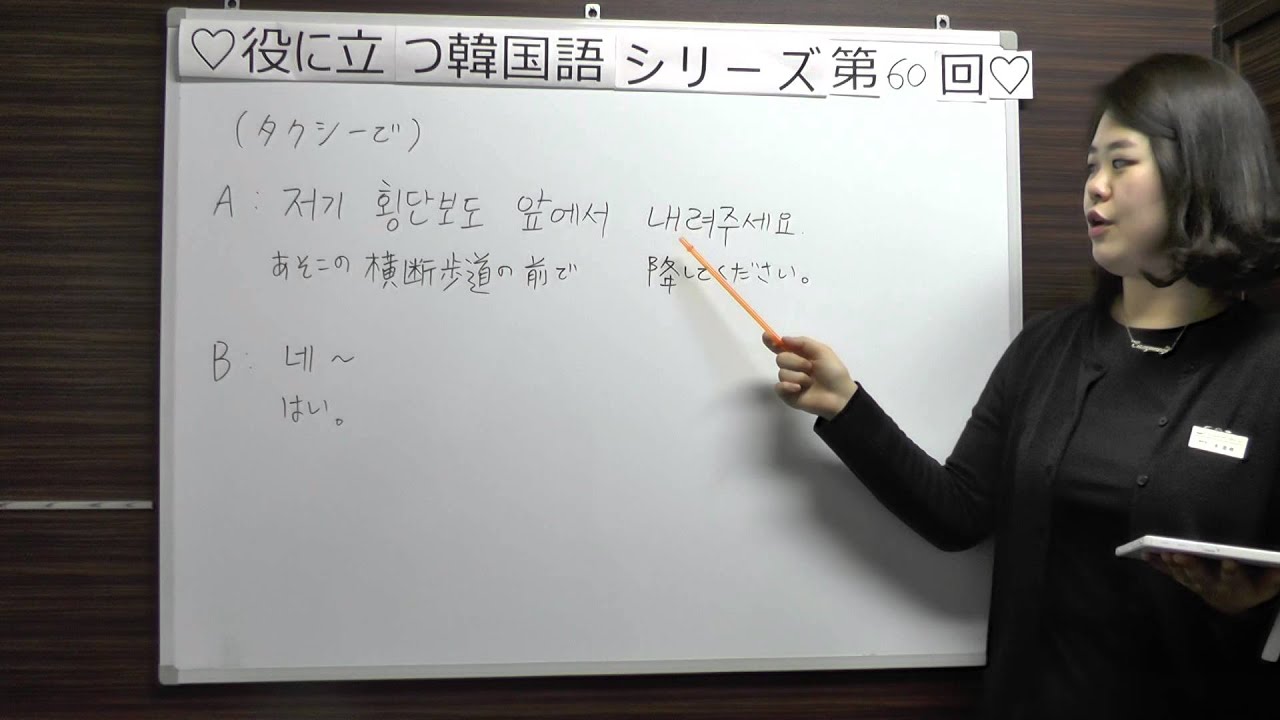 ♡役に立つ韓国語シリーズ第60回♡
(タクシーで)
A: 저기 횡단보도 앞에서 내려주세요.
あそこの横断歩道の前で 降してください。
B: 네~
はい。